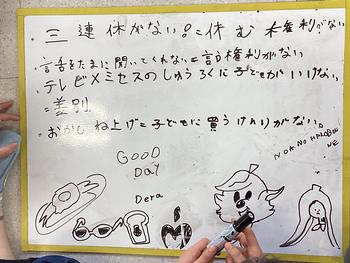 ・三連休がない?=休む権利がない
・言舌をたまに聞いてくれない=言う権利がない
・テレビXミセスのしゅうろくに子どもがいけない
=差別
・おかしね上げ=子どもに買うけんりがない
GOOD
Day
Dera